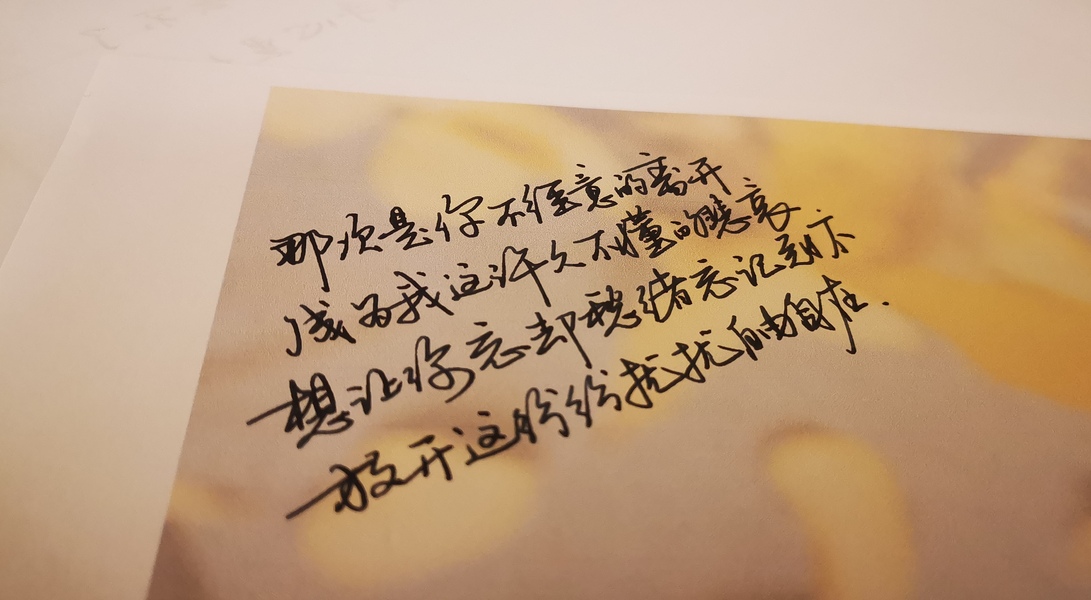 那次是你不经意的离开
成为我这许久不懂的悲哀
想让你忘却愁绪忘记关怀
放开这纷纷扰扰自由自在.